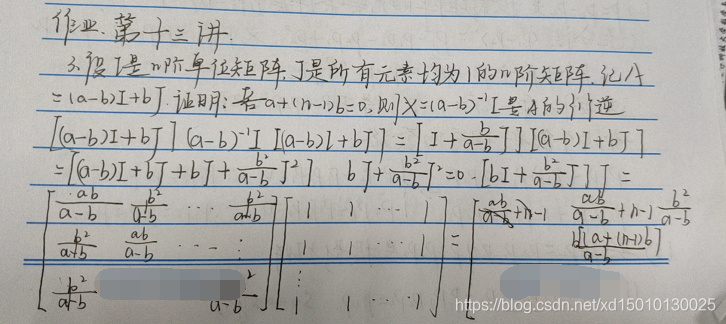 作业.第十三讲.
3.设I是n阶单位矩阵.J是所有元素均为1的n阶矩阵.记A
=(a-b)I+bJ.证明:若a+(n-1)b=0,则X=(a-b)⁻¹I是A的{1}逆
[(a-b)I+bJ](a-b)⁻¹I[(a-b)I+bJ]=[I+\frac{b}{a-b}J][(a-b)I+bJ]
=[(a-b)I+bJ+bJ+\frac{b²}{a-b}J²] bJ+\frac{b²}{a-b}J²=0.[bI+\frac{b²}{a-b}J]J=
[\frac{ab}{a-b} \frac{b²}{a-b} ... \frac{b²}{a-b} [1 1 ... 1] = [\frac{ab}{a-b}+n-1 \frac{ab}{a-b}+n-1\frac{b²}{a-b}
\frac{b²}{a+b} \frac{ab}{a-b} ... 1 1 ... 1 \frac{b[a+(n-1)b]}{a-b}
\frac{b²}{a-b} \frac{²}{a-b}] 1 1 ... 1]
https://blog.csdn.net/xd15010130025